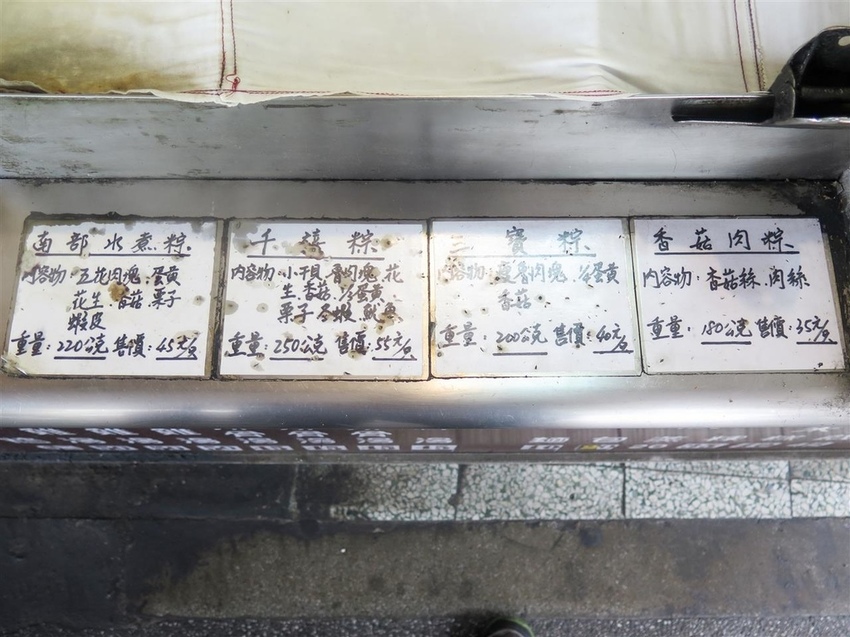 南部水煮粽
內容物:五花肉塊.蛋黃
花生.香菇.栗子
蝦皮
重量:220公克 售價:45元/個
千禧粽
內容物:小干貝.魯肉塊.花
生.香菇.冷蛋黃.
栗子.冬蝦.魷魚
重量:250公克 售價:55元/個
三寶粽
內容物:瘦魯肉塊.冷蛋黃
香菇
重量:200公克 售價:40元/個
香菇肉粽
內容物:香菇絲.肉絲
重量:180公克 售價:35元/個